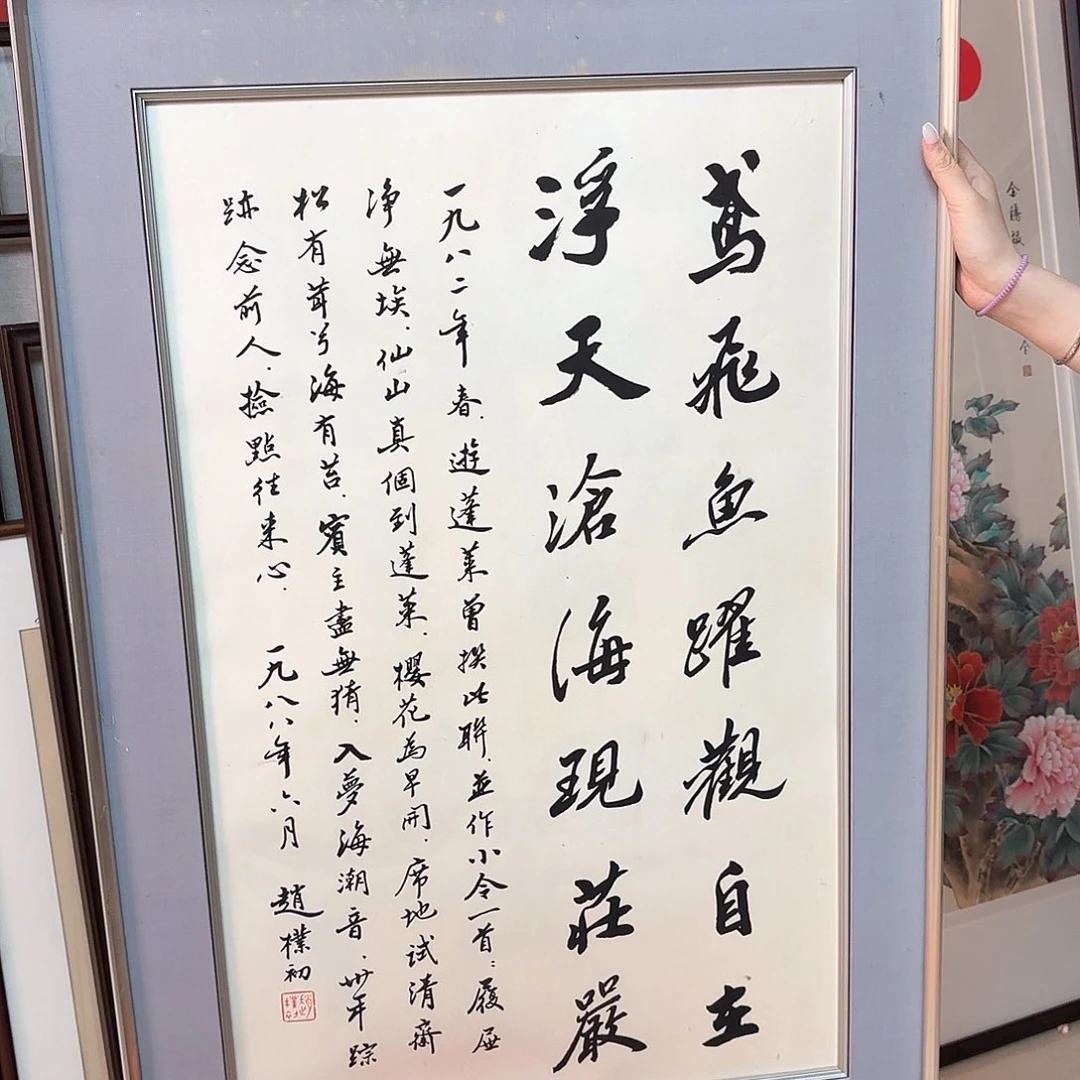 鳶飛魚躍觀自在
淨天滄海現莊嚴
一九八二年春、遊蓬萊曾撰此聯、並作小令一首：屐
净無埃、仙山真個到蓬萊、櫻花為早開、席地試清齋
松有茸兮海有苔、賓主盡無猜、入夢海潮音、卅年踪
跡念前人、撿點往来心、一九八八年六月 趙樸初